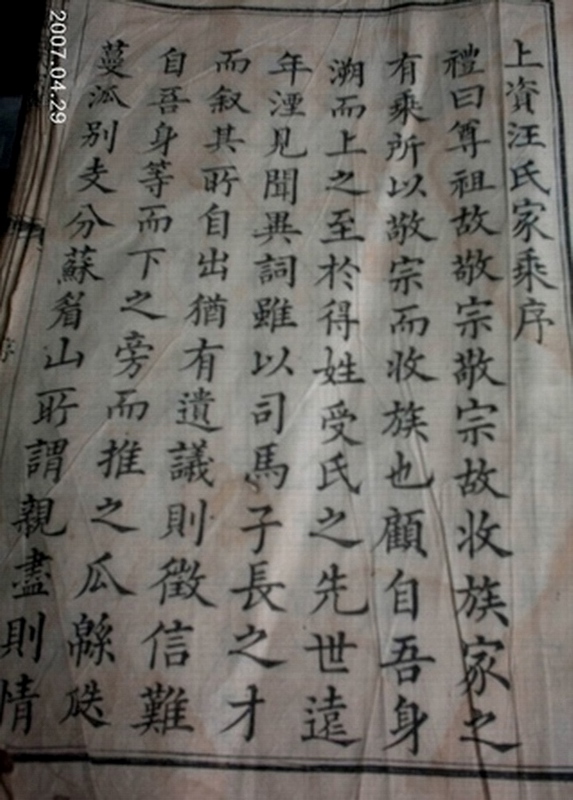 上資汪氏家乘序
禮曰尊祖故敬宗敬宗故收族家之
有乘所以敬宗而收族也顧自吾身
溯而上之至於得姓受氏之先世遠
年湮見聞異詞雖以司馬子長之才
而叙其所自出猶有遺議則徵信難
自吾身等而下之旁而推之瓜緜瓞
蔓派別支分蘇眉山所謂親盡則情
2007.04.29